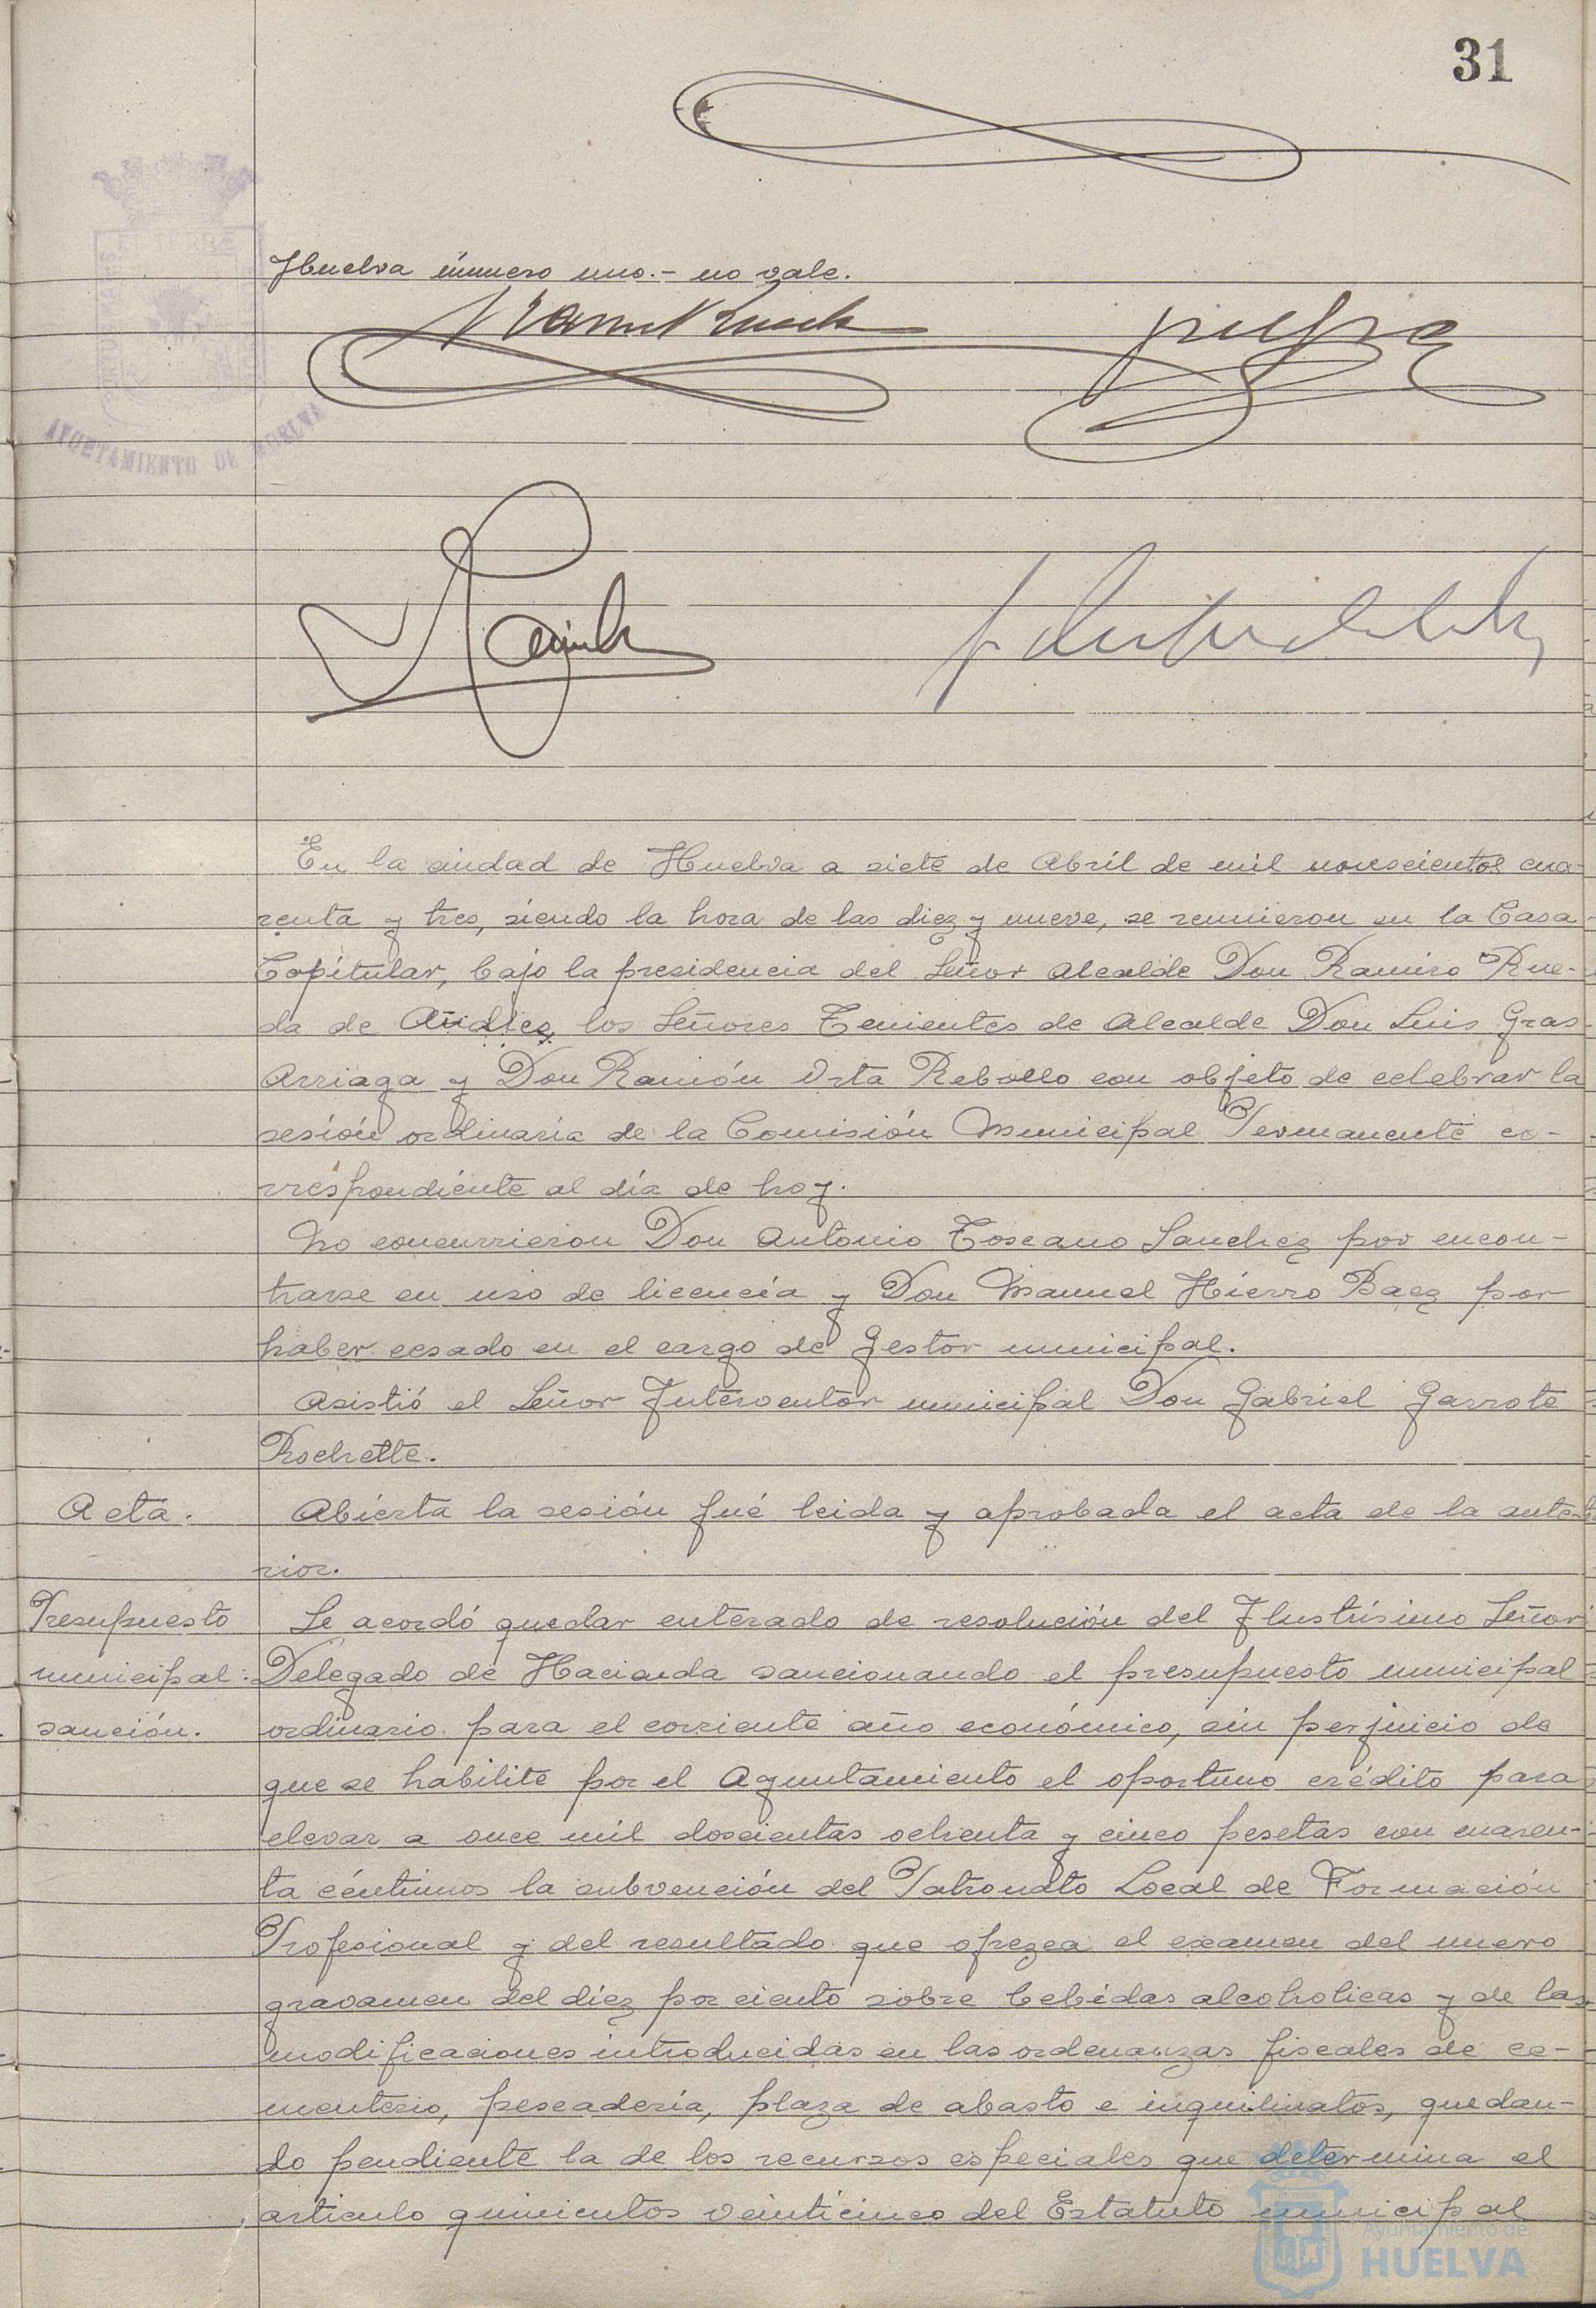 31
Huelva número uno.- no vale.
AYUNTAMIENTO DE HUELVA
En la ciudad de Huelva a siete de Abril de mil novecientos cua-
renta y tres, siendo la hora de las diez y nueve, se reunieron en la Casa
Capitular, bajo la presidencia del Señor Alcalde Don Ramiro Rue-
da de los Señores Tenientes de Alcalde Don Luis Gras
Arriaga y Don Ramón Orta Rebollo con objeto de celebrar la
sesión ordinaria de la Comisión Municipal Permanente co-
rrespondiente al día de hoy.
No concurrieron Don Antonio Toscano Sanchez por encon-
trarse en uso de licencia y Don Manuel Hierro Baez por
haber cesado en el cargo de Gestor municipal.
Asistió el Señor Interventor municipal Don Gabriel Garrote
Rochette.
Acta.
Abierta la sesión fué leida y aprobada el acta de la ante-
rior.
Presupuesto
municipal:
sanción.
Se acordó quedar enterado de resolución del Ilustrísimo Señor
Delegado de Hacienda sancionando el presupuesto municipal
ordinario para el corriente año económico, sin perjuicio de
que se habilite por el Ayuntamiento el oportuno crédito para
elevar a once mil doscientas ochenta y cinco pesetas con cuaren-
ta céntimos la subvención del Patronato Local de Formación
Profesional y del resultado que ofrezca el examen del nuevo
gravamen del diez por ciento sobre bebidas alcoholicas y de las
modificaciones introducidas en las ordenanzas fiscales de ce-
menterio, pescadería, plaza de abasto e inquilinatos, quedan-
do pendiente la de los recursos especiales que determina el
articulo quinientos veinticinco del Estatuto municipal
Ayuntamiento de
HUELVA